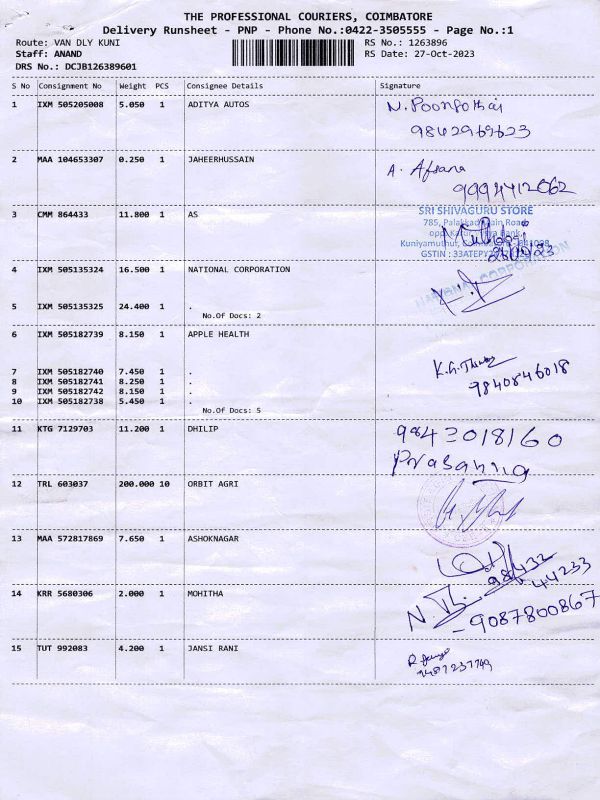 THE PROFESSIONAL COURIERS, COIMBATORE
Delivery Runsheet - PNP - Phone No.:0422-3505555 - Page No.:1
Route: VAN DLY KUNI RS No.: 1263896
Staff: ANAND RS Date: 27-Oct-2023
DRS No.: DCJB126389601
S No Consignment No Weight PCS Consignee Details Signature
1 IXM 505205008 5.050 1 ADITYA AUTOS N. Poongothai
9842969623
2 MAA 104653307 0.250 1 JAHEERHUSSAIN A. Afsana
9994712062
3 CMM 864433 11.800 1 AS SRI SHIVAGURU STORE
785, Palakkad Main Road
Kuniyamuthur,
GSTIN : 33ATEPY
4 IXM 505135324 16.500 1 NATIONAL CORPORATION NATIONAL CORPORATION
5 IXM 505135325 24.400 1 .
No.Of Docs: 2
6 IXM 505182739 8.150 1 APPLE HEALTH
9840846018
7 IXM 505182740 7.450 1 .
8 IXM 505182741 8.250 1 .
9 IXM 505182742 8.150 1 .
10 IXM 505182738 5.450 1 .
No.Of Docs: 5
11 KTG 7129703 11.200 1 DHILIP 9843018160
12 TRL 603037 200.000 10 ORBIT AGRI
13 MAA 572817869 7.650 1 ASHOKNAGAR 98432
44233
14 KRR 5680306 2.000 1 MOHITHA
- 9087800867
15 TUT 992083 4.200 1 JANSI RANI